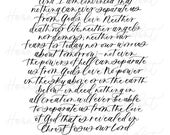 And I am convinced that
nothing can ever separate us
from God's love. Neither
death nor life, neither angels
nor demons, neither our
fears for today nor our worries
about tomorrow - not even
the powers of hell can separate
us from God's love. No power
in the sky above or in the earth
below - indeed, nothing in
all creation will ever be able
to separate us from the love
of God that is revealed in
Christ Jesus our Lord